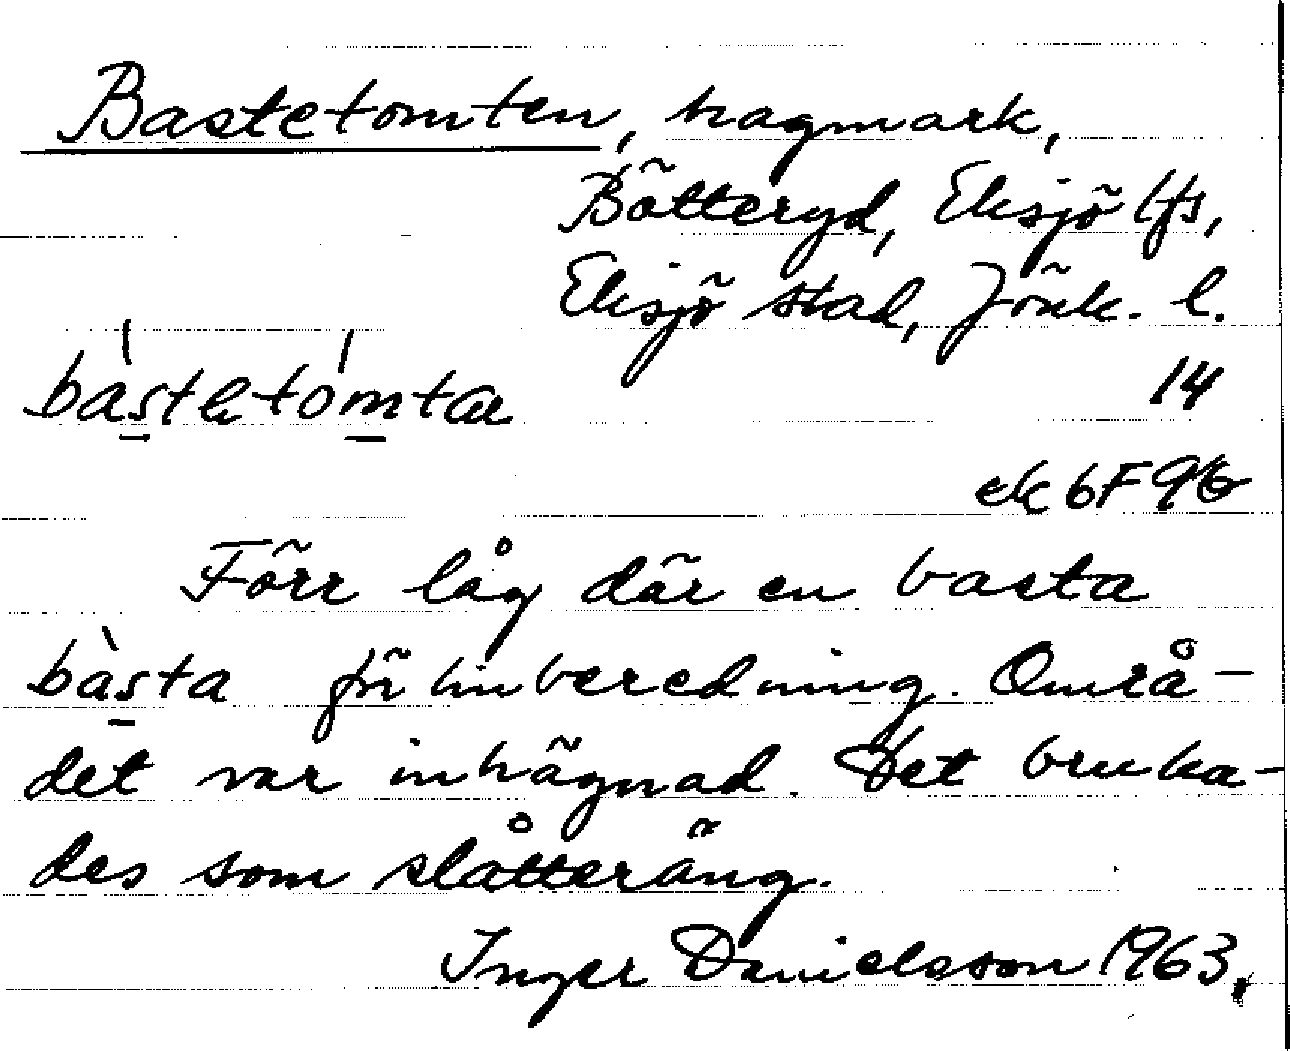 Bastetomten, hagmark,
Bötteryd, Eksjö lfs,
Eksjö stad, Jönk. l.
bàstetòmta 14
ek 6F9b
Förr låg där en basta
bàsta för linberedning. Områ-
det var inhägnad. Det bruka-
des som slåtteräng.
Inger Danielsson 1963.